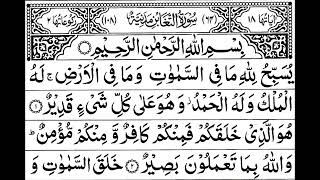 اٰيَاتُهَا ١٨ (٦٤) سُوْرَةُ التَّغَابُنِ مَدَنِيَّةٌ (١٠٨) رُكُوْعَاتُهَا ٢
بِسْمِ اللهِ الرَّحْمٰنِ الرَّحِيْمِ
يُسَبِّحُ لِلّٰهِ مَا فِي السَّمٰوٰتِ وَمَا فِي الْاَرْضِ ۚ لَهُ
الْمُلْكُ وَلَهُ الْحَمْدُ ۫ وَهُوَ عَلٰى كُلِّ شَىْءٍ قَدِيْرٌ ۝١
هُوَ الَّذِيْ خَلَقَكُمْ فَمِنْكُمْ كَافِرٌ وَّ مِنْكُمْ مُّؤْمِنٌ ؕ
وَاللهُ بِمَا تَعْمَلُوْنَ بَصِيْرٌ ۝٢ خَلَقَ السَّمٰوٰتِ وَ